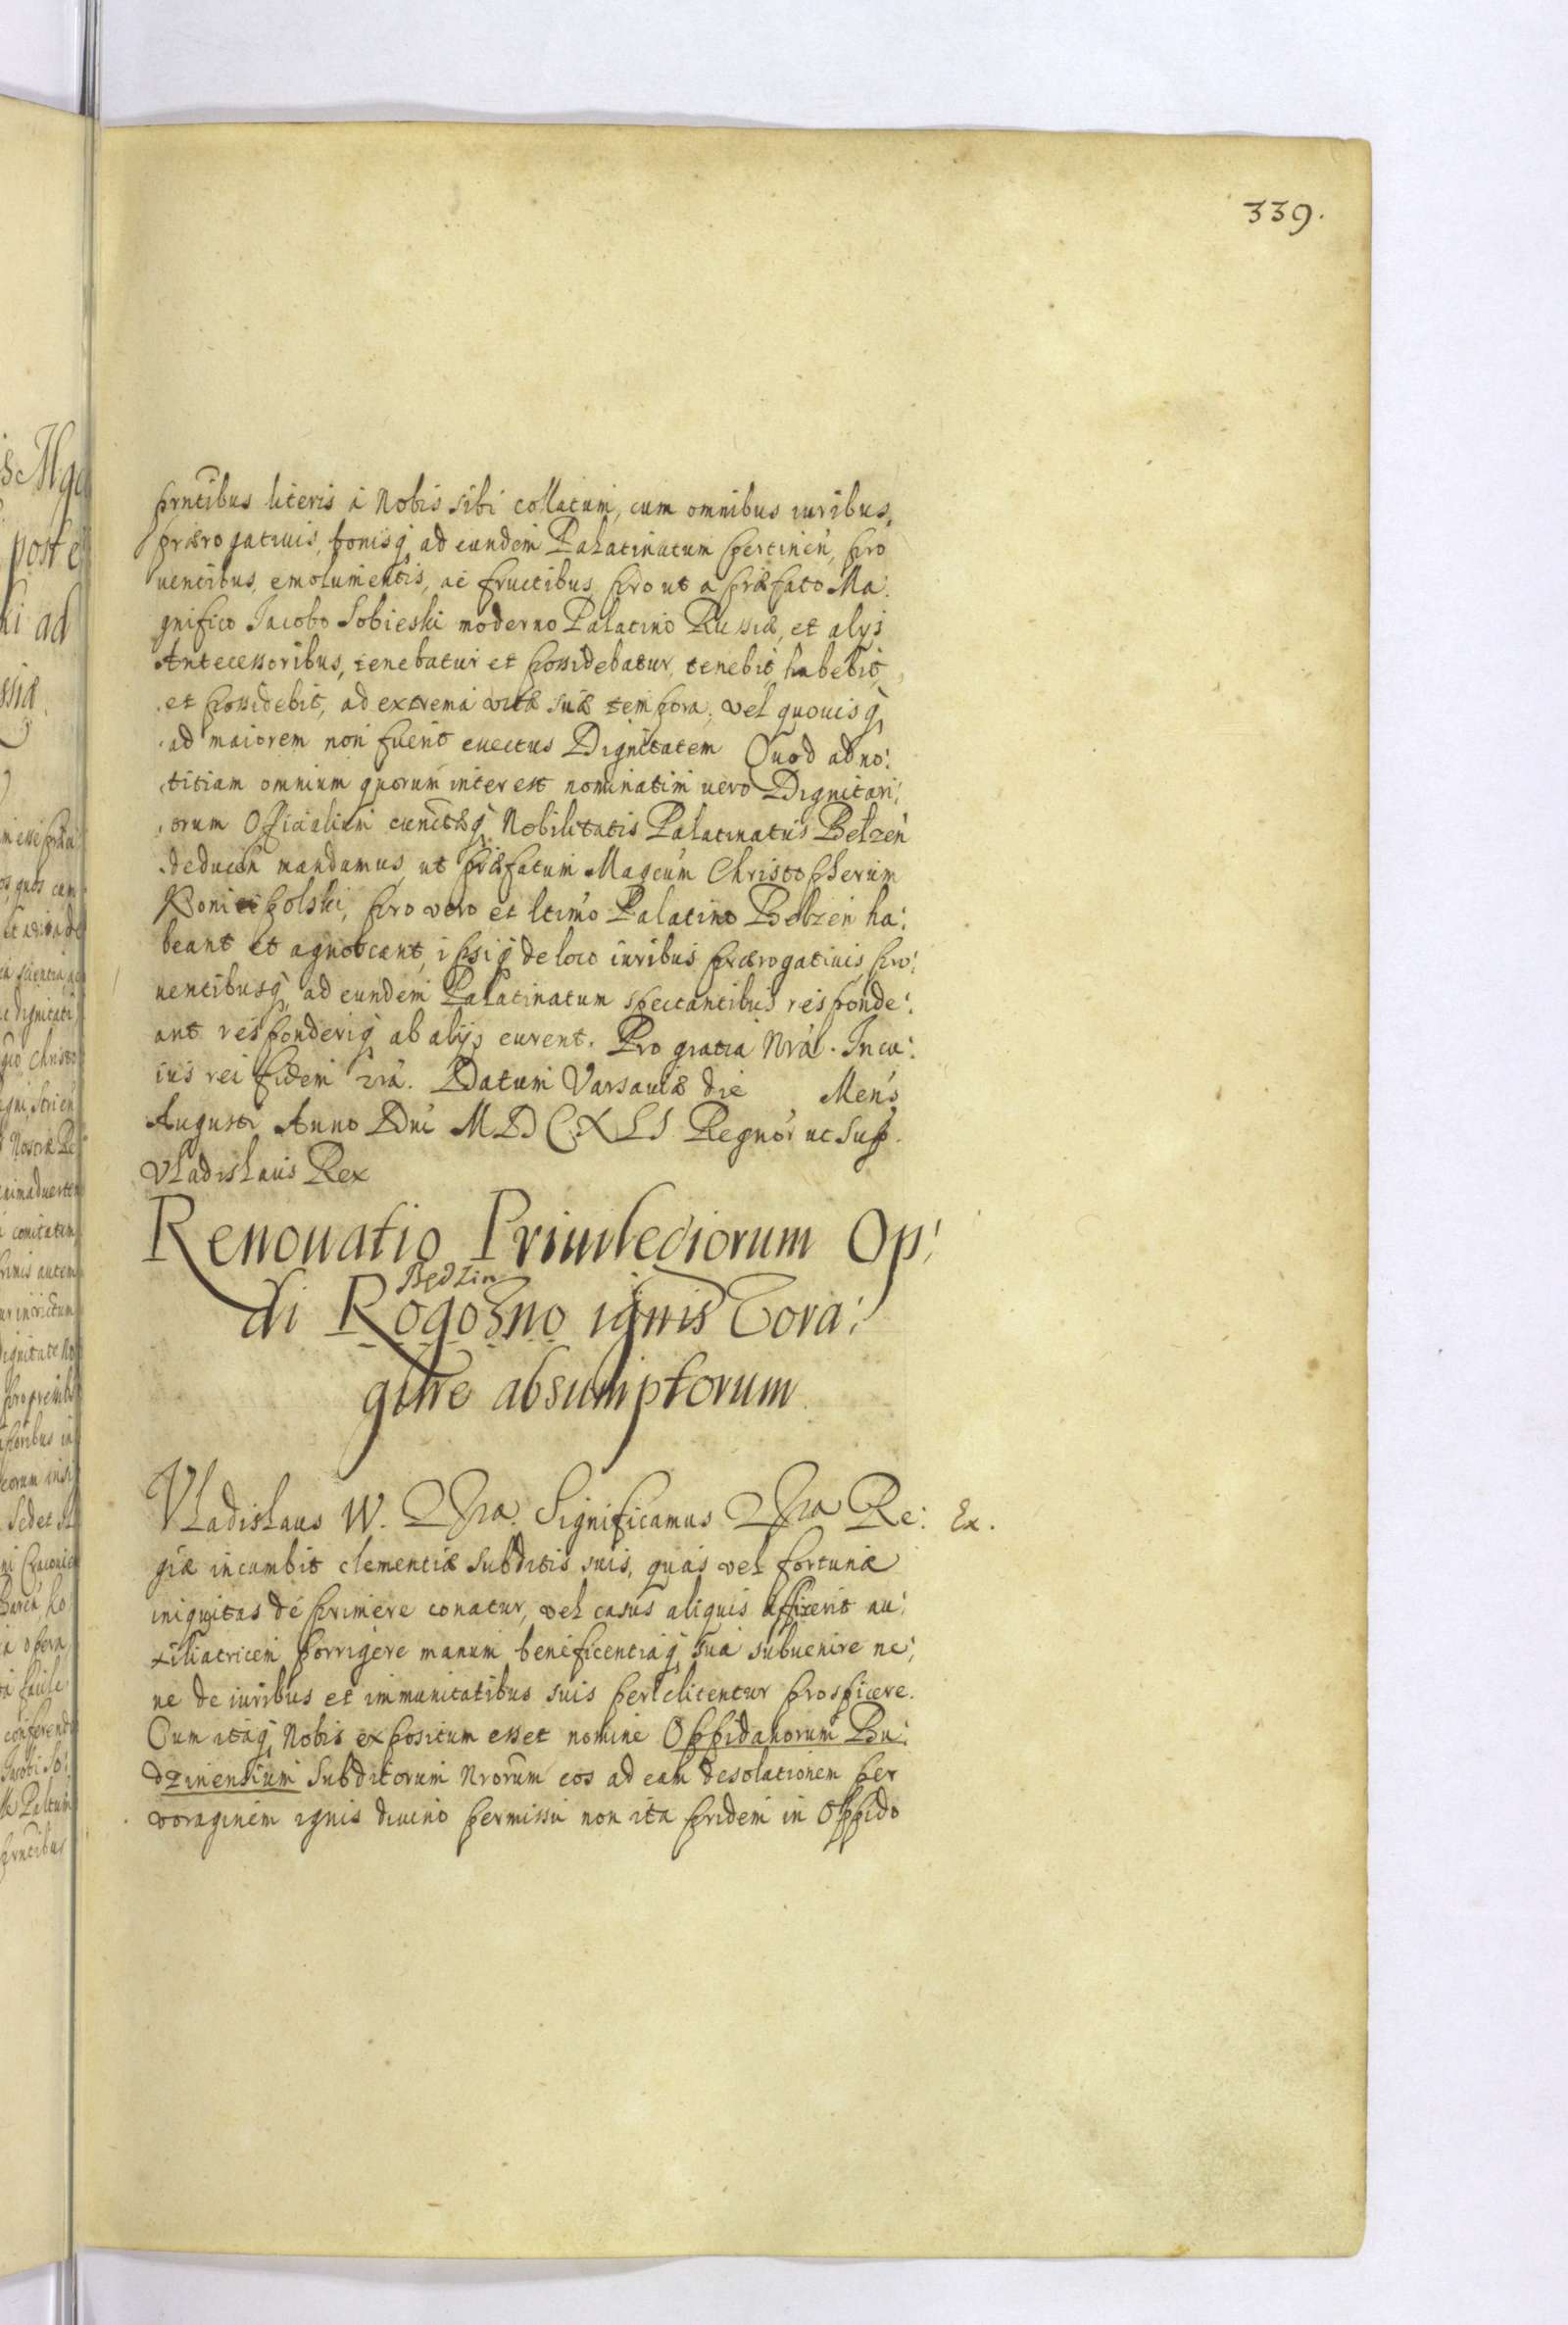 339.
prntibus literis à Nobis sibi collatum, cum omnibus iuribus,
prærogatiuis, bonisq ad eundem Palatinatum pertinen, pro
uentibus, emolumentis, ac fructibus prout a præfato Ma:
gnifico Jacobo Sobieski moderno Palatino Russiæ, et alijs
Antecessoribus, tenebatur et possidebatur, tenebit, habebit,
et possidebit, ad extrema vitæ suæ tempora, vel quouisq
ad maiorem non fuerit euectus Dignitatem Quod ad no:
titiam omnium quorum interest nominatim uero Dignitari:
orum Officialium cunctæq Nobilitatis Palatinatus Belzen
deducen mandamus, ut præfatum Magcum Christopherum
Koniecpolski, pro vero et ltimo Palatino Belzen ha:
beant et agnoscant, ipsiq de loco iuribus prærogatiuis pro:
uentibusq ad eundem Palatinatum spectantibus responde:
ant responderiq ab alijs curent. Pro gratia Nrá. In cu:
ius rei fidem Datum Varsauiæ die Mens
Augusti Anno Dni MDCXLI Regnor ut sup.
Vladislaus Rex
Renouatio Priuilegiorum Op:
Będzin
di Rogozno ignis Vora:
gine absumptorum
Vladislaus IV. Significamus Re: Ex.
giæ incumbit clementiæ subditis suis, quas vel fortunæ
iniquitas deprimere conatur, vel casus aliquis afflixerit au:
xiliatricem porrigere manum beneficentiaq sua subuenire ne:
ne de iuribus et immunitatibus suis periclitentur prospicere.
Cum itaq Nobis expositum esset nomine Oppidanorum Bu:
dzinensium Subditorum Nrorum eos ad eam desolationem per
voraginem ignis diuino permissu non ita pridem in Oppido